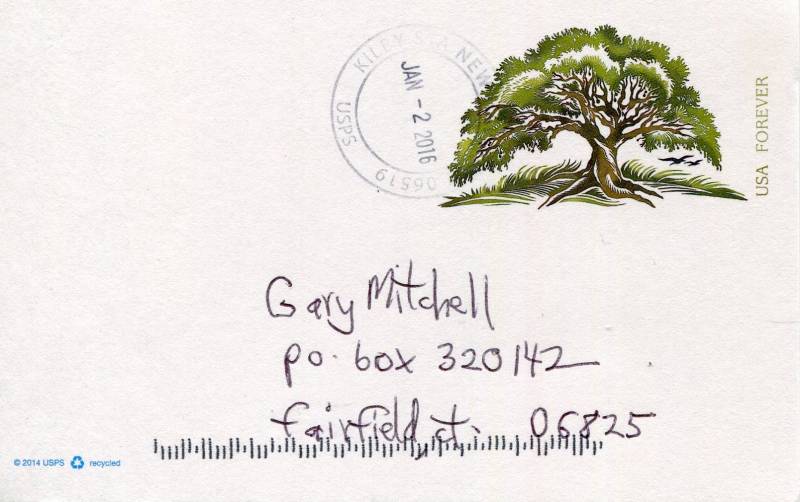 KILEY STA NEW
JAN - 2 2016
USPS
06519
USA FOREVER
Gary Mitchell
po. box 320142
fairfield, ct. 06825
© 2014 USPS recycled